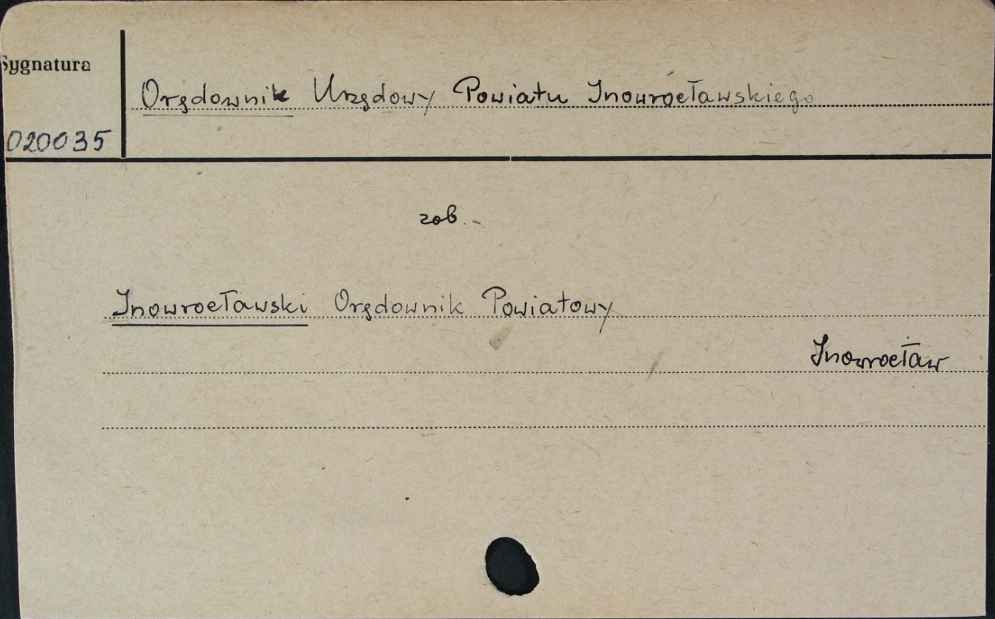 Sygnatura
Orędownik Urzędowy Powiatu Inowrocławskiego
020035
zob.
Inowrocławski Orędownik Powiatowy
Inowrocław